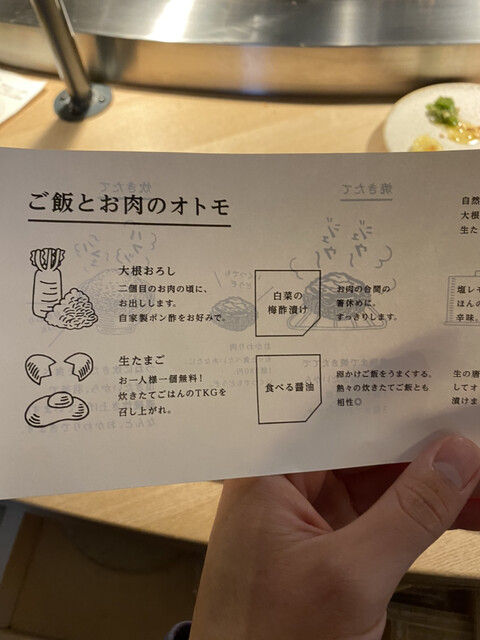 ご飯とお肉のオトモ
大根おろし
二個目のお肉の頃に、
お出しします。
自家製ポン酢をお好みで。
生たまご
お一人様一個無料！
炊きたてごはんのTKGを
召し上がれ。
白菜の
梅酢漬け
お肉の合間の
箸休めに。
すっきりします。
食べる醤油
卵かけご飯をうまくする、
熱々の炊きたてご飯とも
相性◎
自然
大根
生た
塩レモ
ほんの
辛味、
生の唐
してオ
漬けま
焼きたて
炊きたて